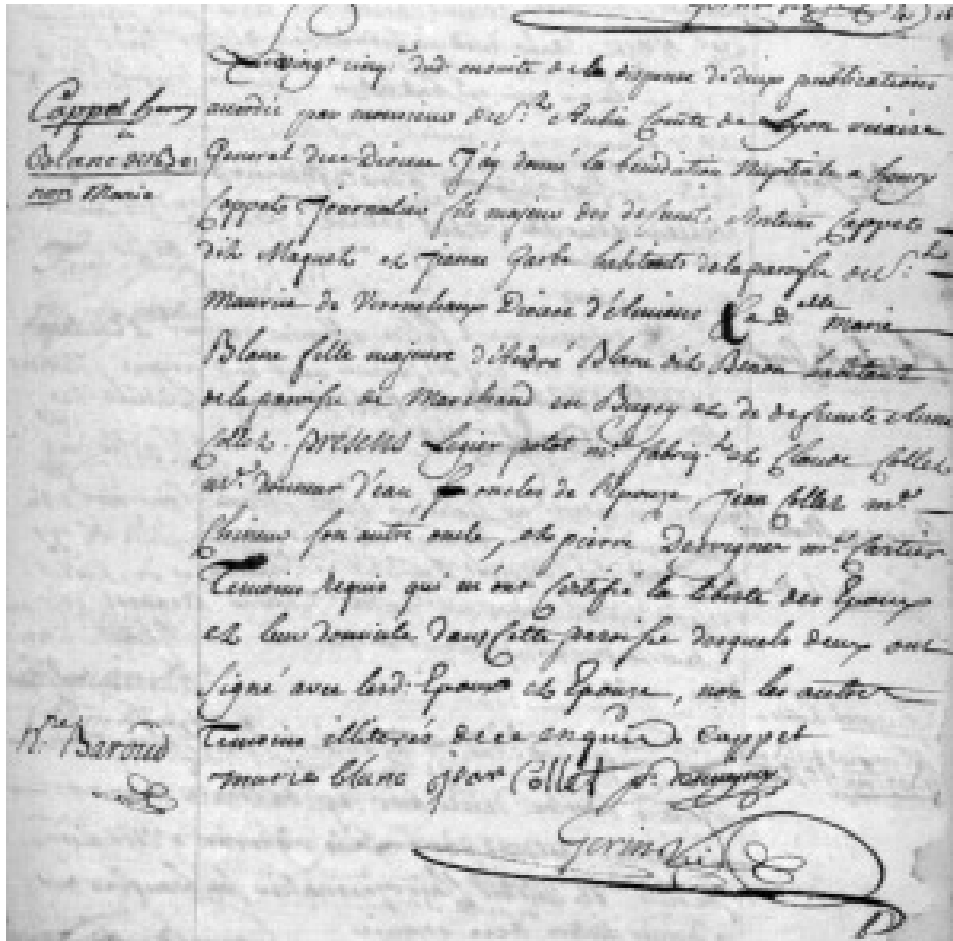 Cappet henry
&
Blanc dit Be
non Marie
Le vingt cinq dud. ensuite de la dispense de deux publications
accordée par monsieur de St. Aubin Comte de Lyon vicaire
General du Diocese j'ay donné la benediction Nuptiale a henry
Cappet journalier fils majeur des defunts Antoine Cappet
dit Maquet et jeanne habitants de la paroisse de St.
Maurice de Diocese & D.elle Marie
Blanc fille majeure d'André Blanc dit Benon habitant
de la paroisse de Marchand en Bugey et de defunte
Collet. presens potot m.e fabriq.t et Claude Collet
m.e donneur d'eau, oncles de l'Epouze, jean Collet m.e
son autre oncle, et pierre Desvignes m.e Cartier
Temoins requis qui m'ont Certifié la liberté des Epoux
et leur domicile dans Cette paroisse desquels deux ont
signé avec lesd. Epoux et Epouze, non les autres
Temoins illiterés de ce enquis. Cappet
marie blanc jean Collet p. desvignes
N.re Baroud
Gerin Vic.